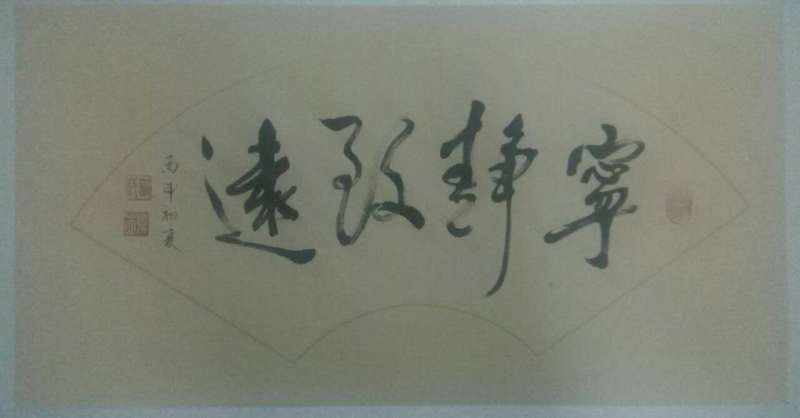 寧靜致遠
丙年初夏